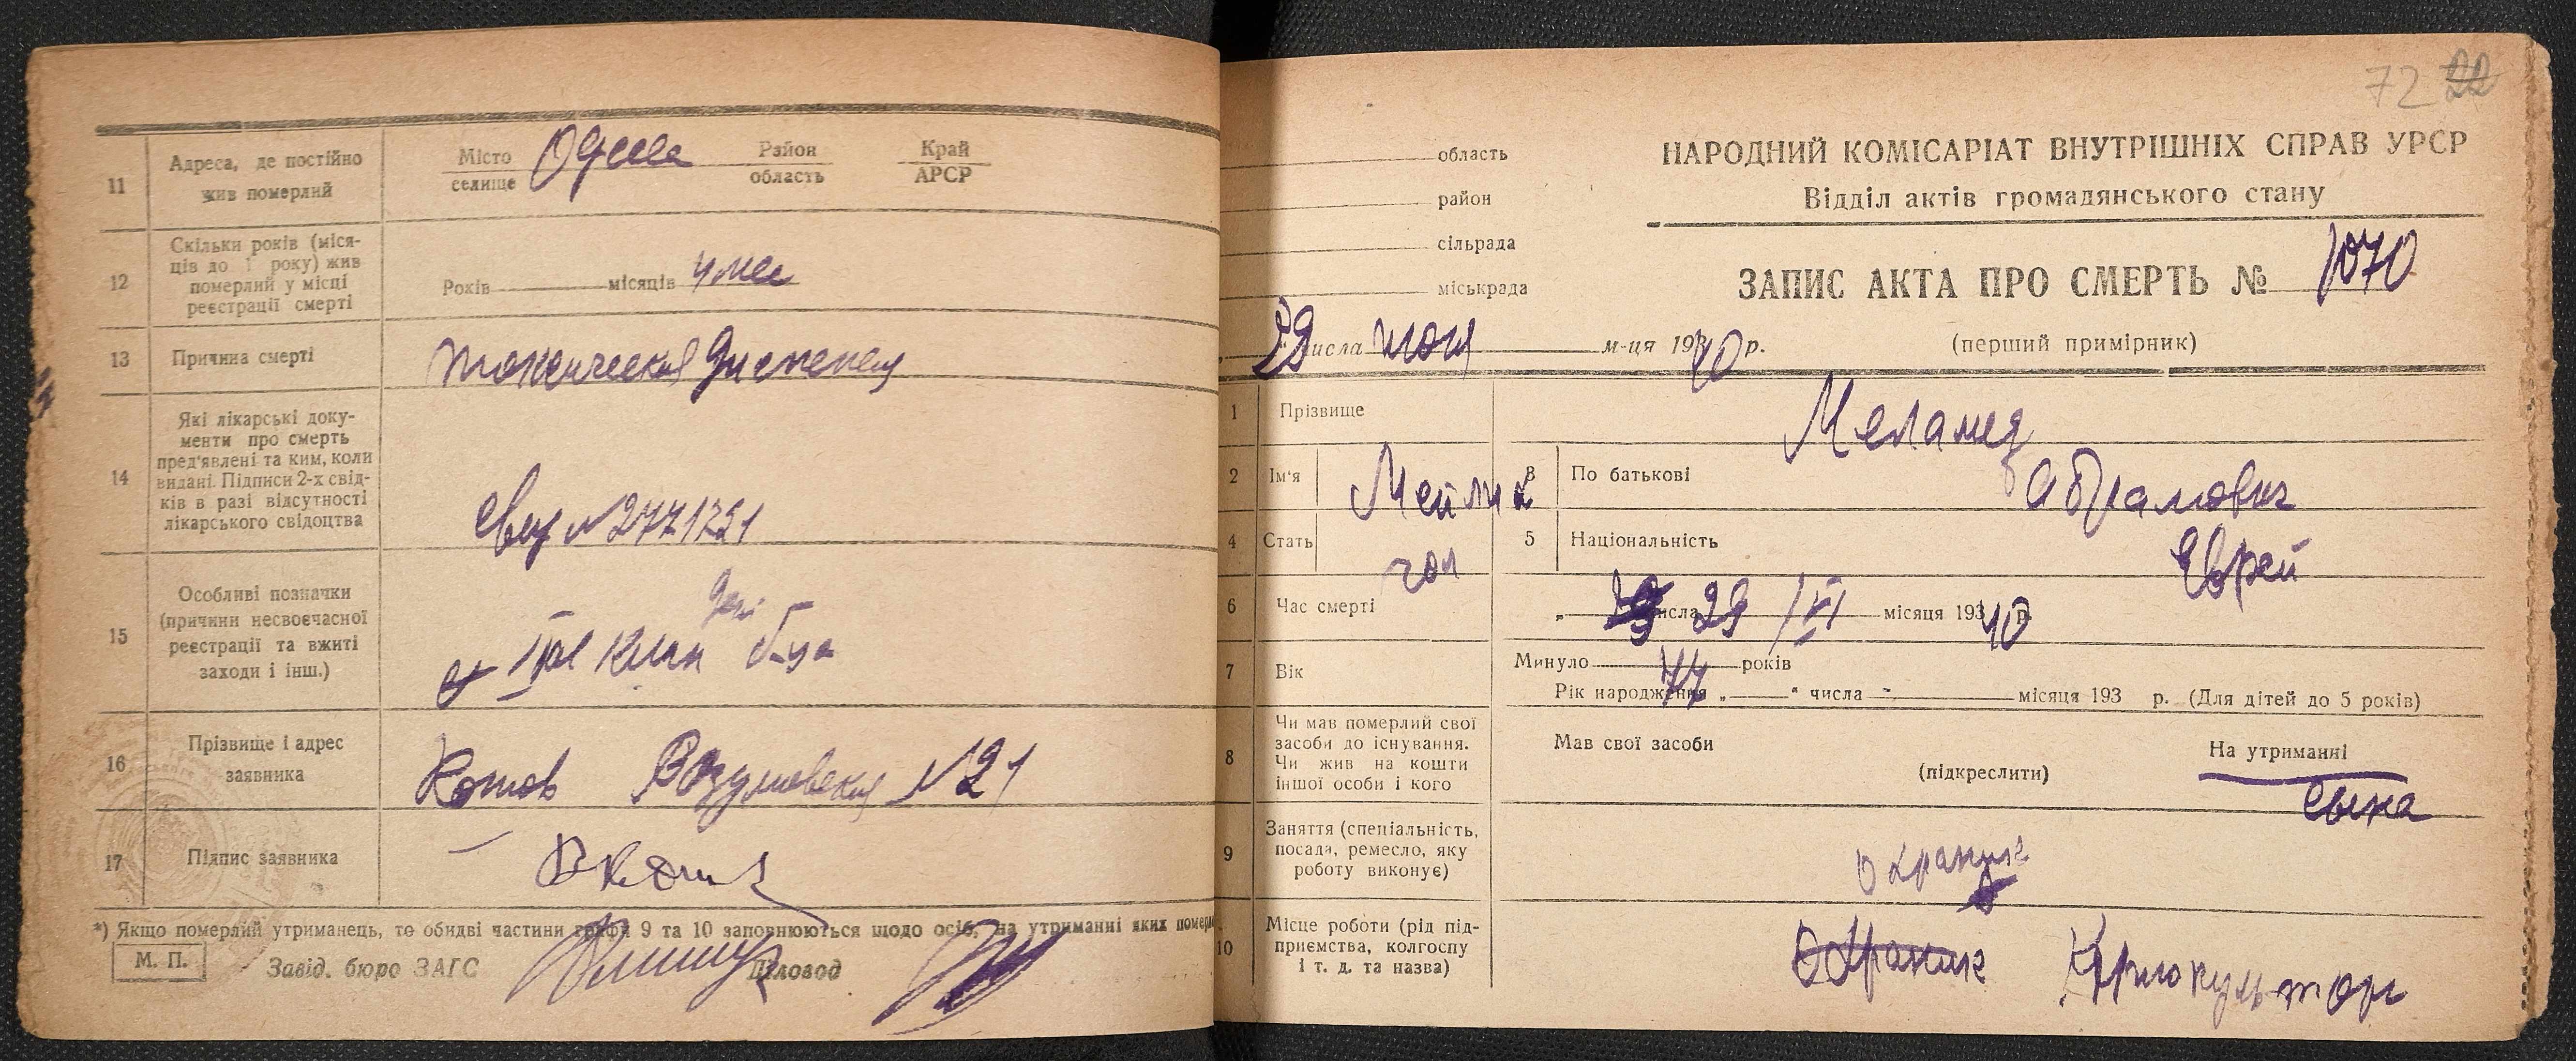 11
Адреса, де постійно
жив померлий
Місто
селище
Одесса
Район
область
Край
АРСР
12
Скільки років (міся-
ців до 1 року) жив
померлий у місці
реєстрації смерті
Років місяців 4 мес
13
Причина смерті
токсическая диспепсия
14
Які лікарські доку-
менти про смерть
пред'явлені та ким, коли
видані. Підписи 2-х свід-
ків в разі відсутності
лікарського свідоцтва
№ 2771721
15
Особливі позначки
(причини несвоєчасної
реєстрації та вжиті
заходи і інш.)
клин
16
Прізвище і адрес
заявника
Котов Разумовская №21
17
Підпис заявника
*) Якщо померлий утриманець, то обидві частини графи 9 та 10 заповнюються щодо осіб, на утриманні яких
М. П.
Завід. бюро ЗАГС
Діловод
72 22
область
район
сільрада
міськрада
НАРОДНИЙ КОМІСАРІАТ ВНУТРІШНІХ СПРАВ УРСР
Відділ актів громадянського стану
ЗАПИС АКТА ПРО СМЕРТЬ № 1070
29 числа июня м-ця 1940 р.
(перший примірник)
1
Прізвище
Меламед
2
Ім'я
3
По батькові
Абрамович
4
Стать
чол
5
Національність
Еврей
6
Час смерті
„ числа 29/VI місяця 193 40 р.
7
Вік
Минуло 77 років
Рік народження „ " числа - місяця 193 р. (Для дітей до 5 років)
8
Чи мав померлий свої
засоби до існування.
Чи жив на кошти
іншої особи і кого
Мав свої засоби
(підкреслити)
На утриманні
сына
9
Заняття (спеціальність,
посада, ремесло, яку
роботу виконує)
охраник
10
Місце роботи (рід під-
приємства, колгоспу
і т. д. та назва)
Охраник Укркультторг